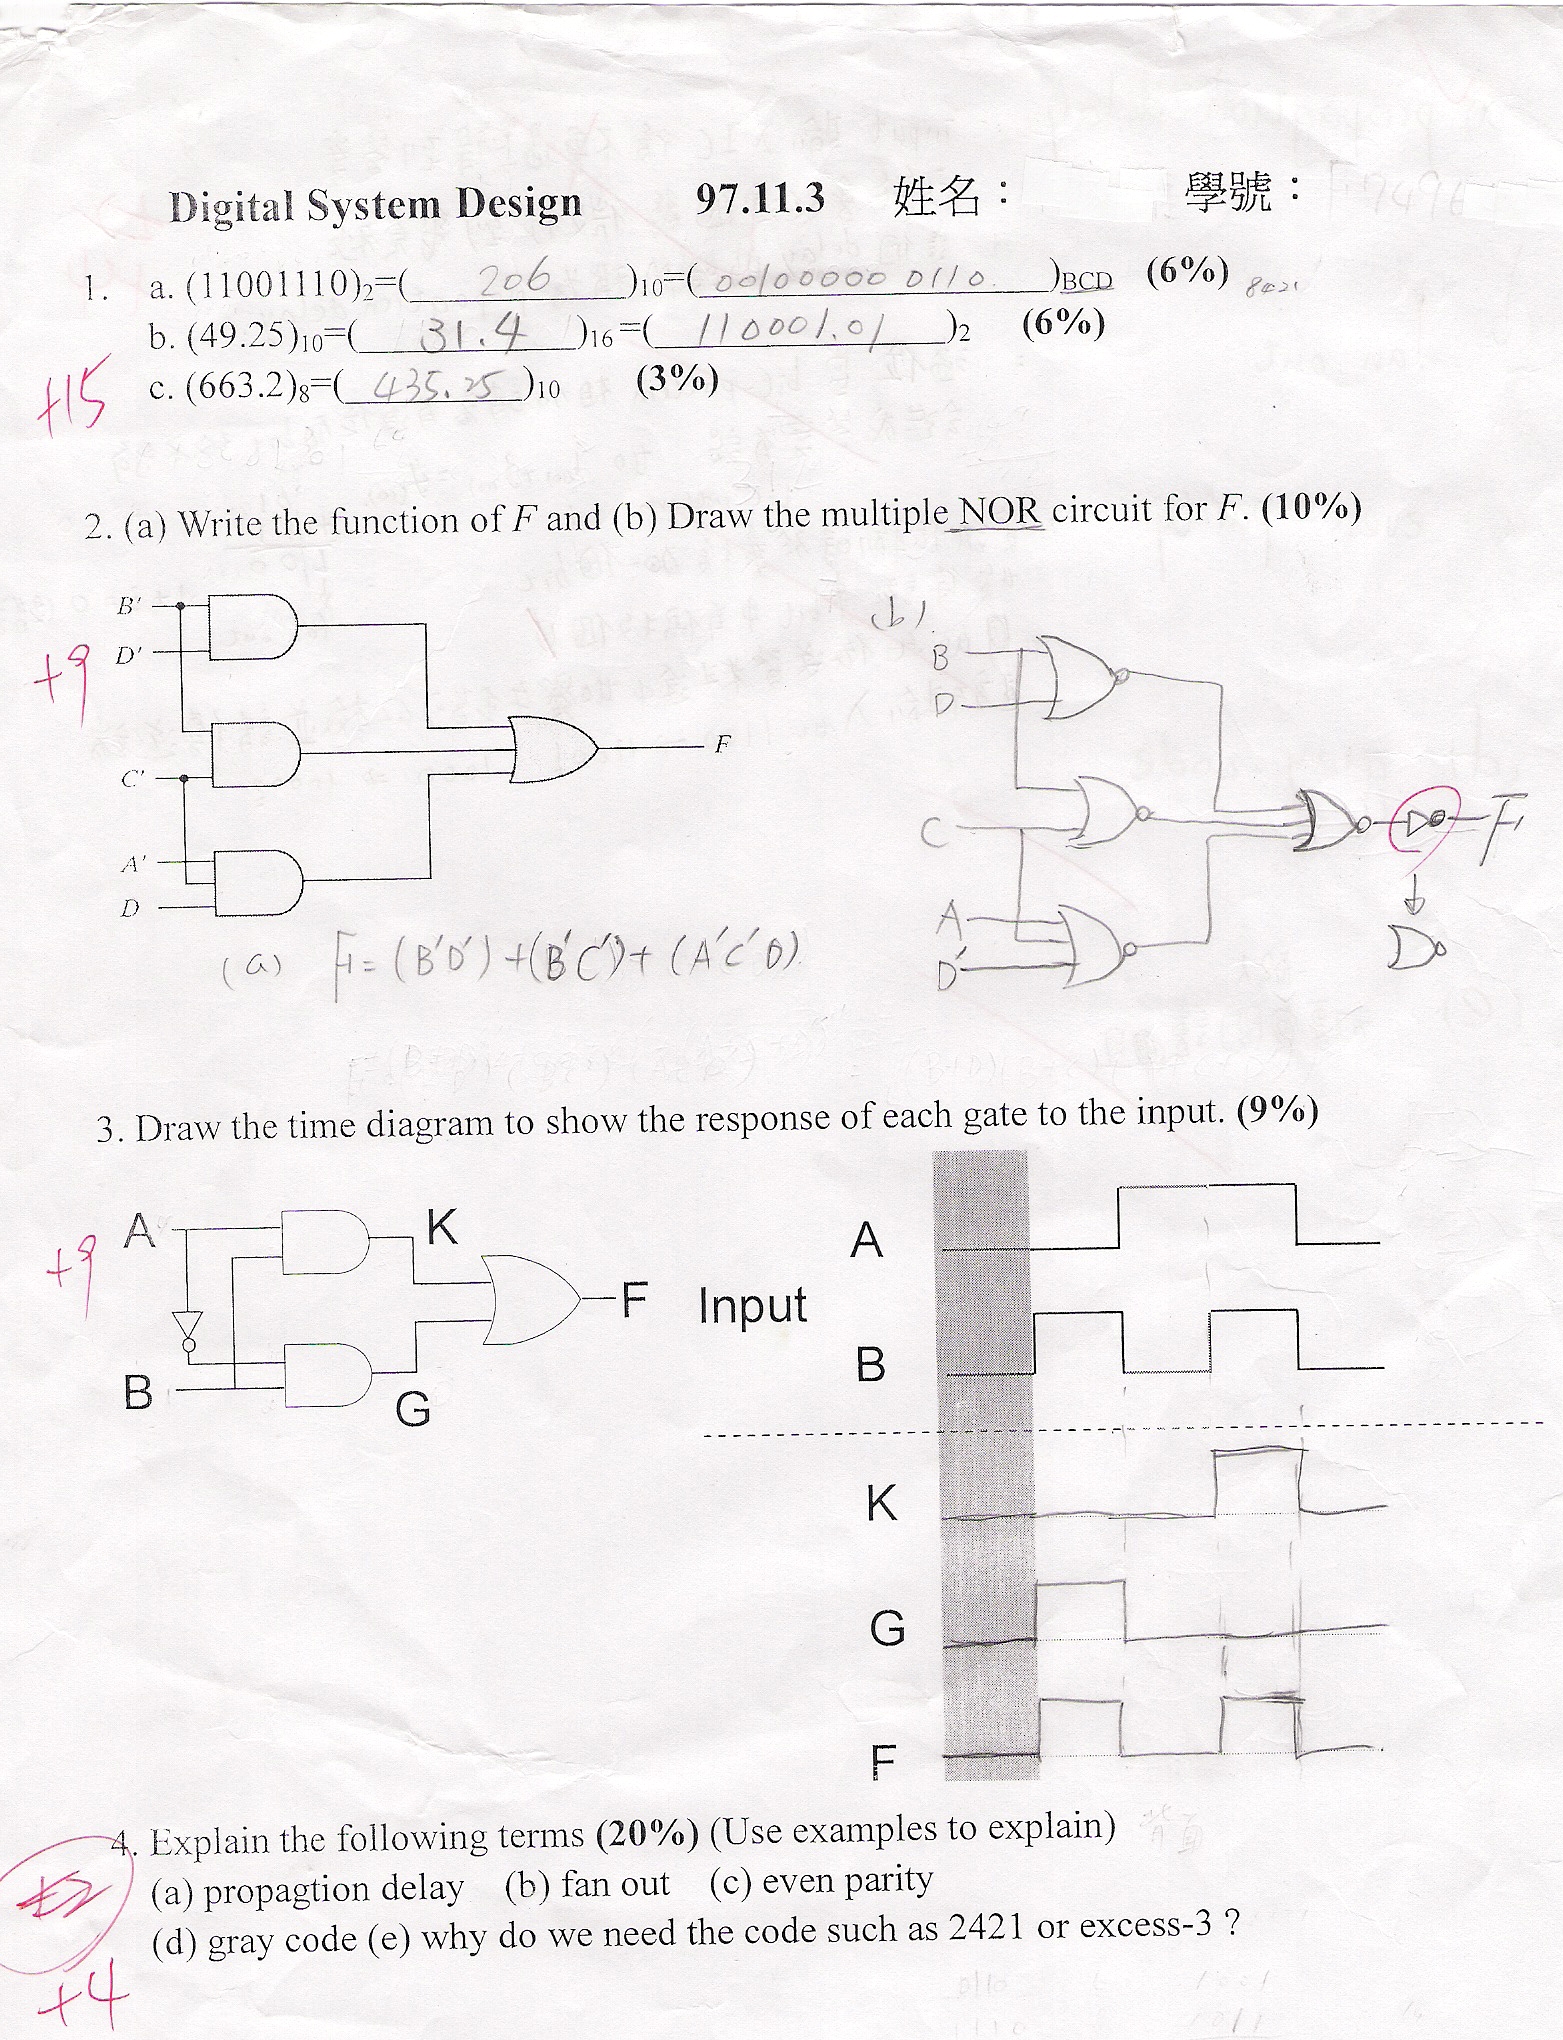 Digital System Design 97.11.3 姓名： 學號：
1. a. (11001110)₂=( 206 )₁₀=( 00100000 0110 )BCD (6%) 8421
b. (49.25)₁₀=( 31.4 )₁₆=( 110001.01 )₂ (6%)
c. (663.2)₈=( 435.25 )₁₀ (3%)
+15
2. (a) Write the function of F and (b) Draw the multiple NOR circuit for F. (10%)
+9
B'
D'
C'
A'
D
F
(b)
B
D
C
A
D'
F
(a) F=(B'D')+(B'C')+(A'C'D)
3. Draw the time diagram to show the response of each gate to the input. (9%)
+9
A
K
F
B
G
Input
A
B
K
G
F
4. Explain the following terms (20%) (Use examples to explain) 背面
(a) propagtion delay (b) fan out (c) even parity
(d) gray code (e) why do we need the code such as 2421 or excess-3 ?
+4